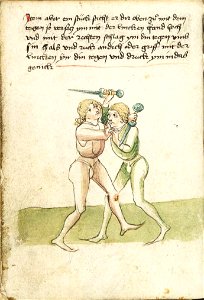 Item aber ein stuck sticht er dir oben zu mit dem
degen so versetz im mit der lincken hand
vnd mit der rechten schlag im din degen vmb
sin hals vnd ruck an dich oder griff mit der
lincken im din degen vnd druck im in das
genick